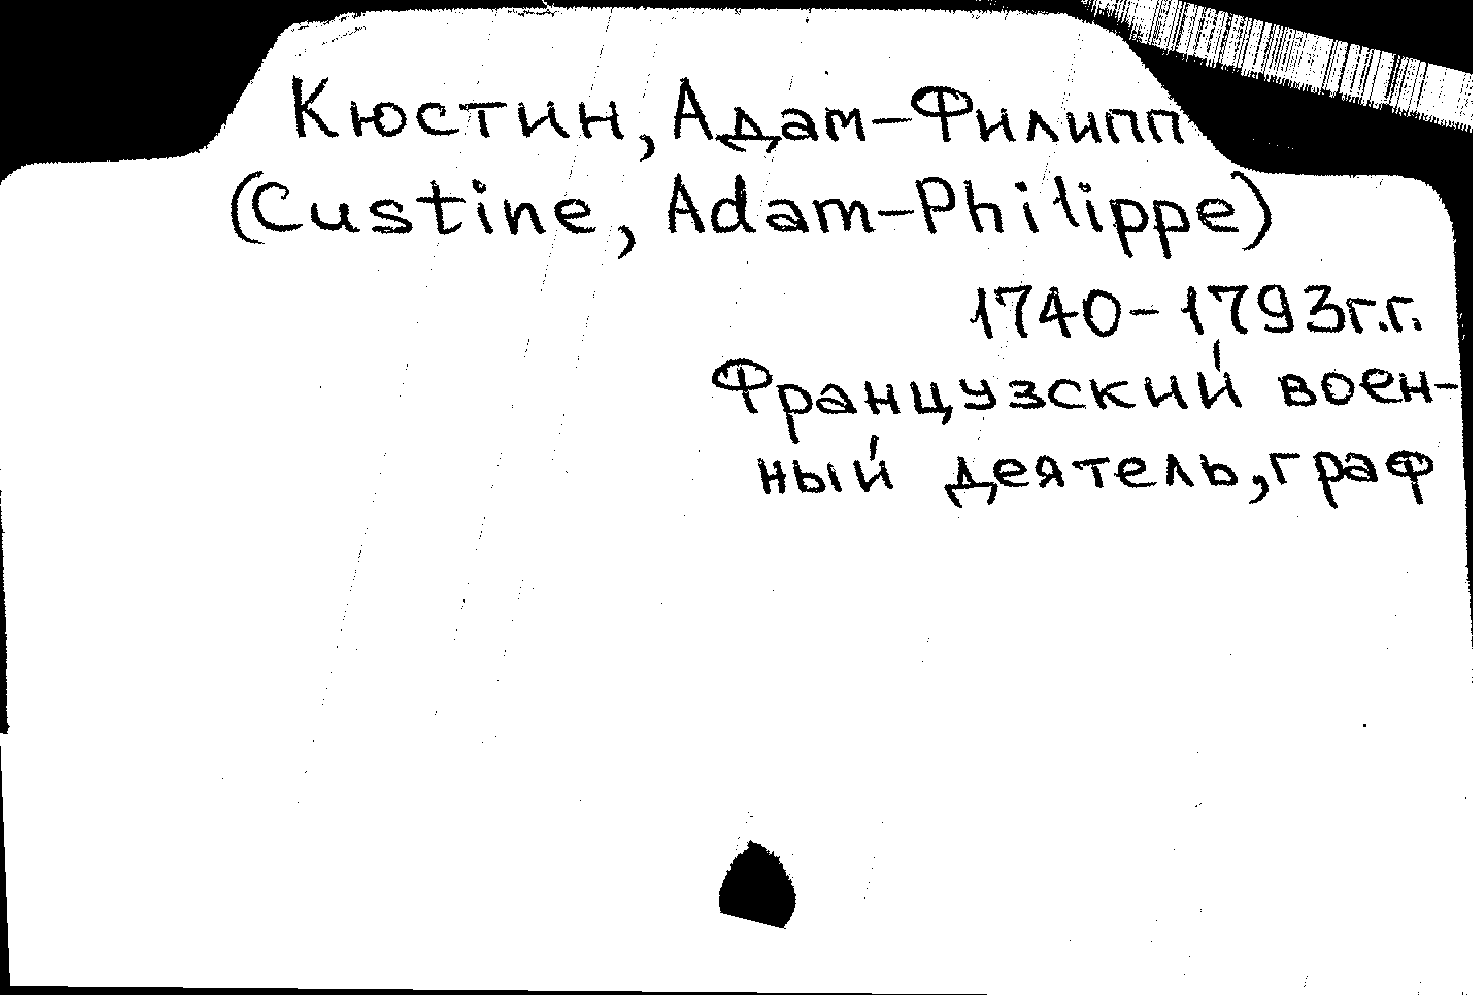 Кюстин, Адам-Филипп
(Custine, Adam-Philippe)
1740-1793г.г.
Французский воен-
ный деятель, граф